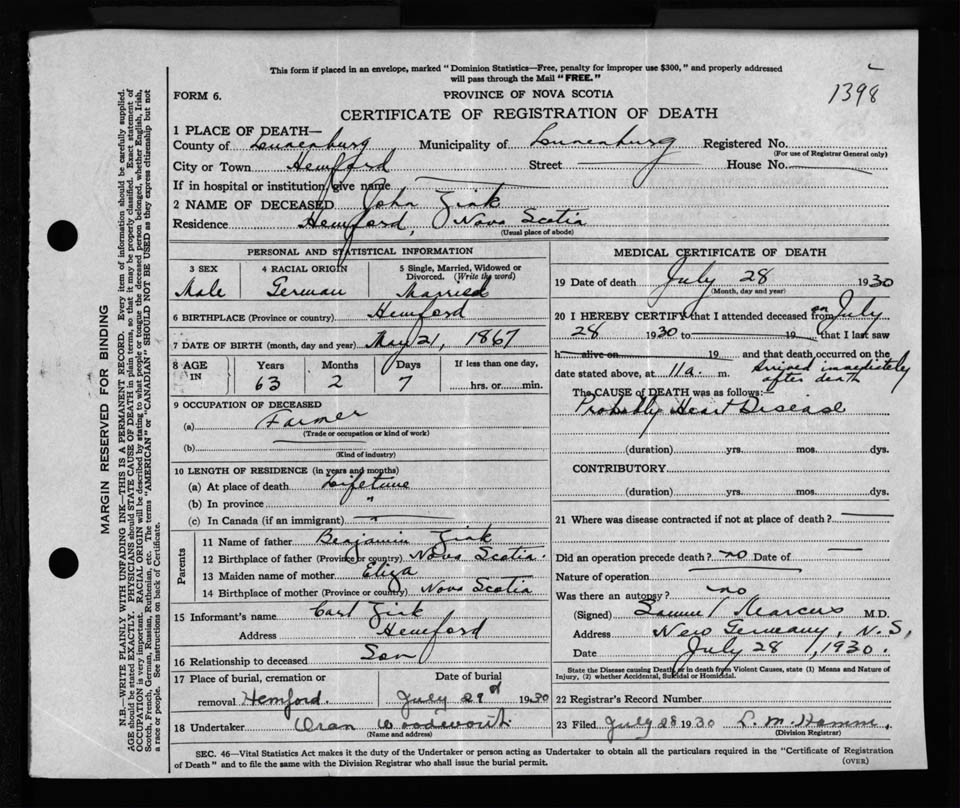 This form if placed in an envelope, marked "Dominion Statistics—Free, penalty for improper use $300," and properly addressed
will pass through the Mail "FREE."
1398
FORM 6.
PROVINCE OF NOVA SCOTIA
CERTIFICATE OF REGISTRATION OF DEATH
1 PLACE OF DEATH—
County of Lunenburg Municipality of Lunenburg Registered No.
(For use of Registrar General only)
City or Town Hemford Street House No.
If in hospital or institution, give name
2 NAME OF DECEASED John Zink
Residence Hemford, Nova Scotia
(Usual place of abode)
PERSONAL AND STATISTICAL INFORMATION
3 SEX 4 RACIAL ORIGIN 5 Single, Married, Widowed or
Divorced. (Write the word)
Male German Married
6 BIRTHPLACE (Province or country) Hemford
7 DATE OF BIRTH (month, day and year) May 21, 1867
8 AGE IN Years Months Days If less than one day,
63 2 7 hrs. or min.
9 OCCUPATION OF DECEASED
(a) Farmer
(Trade or occupation or kind of work)
(b)
(Kind of industry)
10 LENGTH OF RESIDENCE (in years and months)
(a) At place of death Lifetime
(b) In province "
(c) In Canada (if an immigrant) "
Parents
11 Name of father Benjamin Zink
12 Birthplace of father (Province or country) Nova Scotia.
13 Maiden name of mother Eliza
14 Birthplace of mother (Province or country) Nova Scotia
15 Informant's name Carl Zink
Address Hemford
16 Relationship to deceased Son
17 Place of burial, cremation or Date of burial
removal Hemford. July 29th 1930
18 Undertaker Oran
(Name and address)
MEDICAL CERTIFICATE OF DEATH
19 Date of death July 28 1930
(Month, day and year)
20 I HEREBY CERTIFY that I attended deceased from on July
28 1930 to 19 that I last saw
h alive on 19 and that death occurred on the
date stated above, at 11 a. m. Arrived immediately
after death
The CAUSE of DEATH was as follows:
Probably Heart Disease
(duration) yrs. mos. dys.
CONTRIBUTORY
(duration) yrs. mos. dys.
21 Where was disease contracted if not at place of death?
Did an operation precede death? no Date of
Nature of operation
Was there an autopsy? no
(Signed) Samuel Marcus M.D.
Address New Germany, N.S,
Date July 28, 1930.
State the Disease causing Death, or in death from Violent Causes, state (1) Means and Nature of
Injury, (2) whether Accidental, Suicidal or Homicidal.
22 Registrar's Record Number
23 Filed July 28 1930 L. M. Hamm.
(Division Registrar)
SEC. 46—Vital Statistics Act makes it the duty of the Undertaker or person acting as Undertaker to obtain all the particulars required in the "Certificate of Registration
of Death" and to file the same with the Division Registrar who shall issue the burial permit.
(OVER)
MARGIN RESERVED FOR BINDING
N.B.—WRITE PLAINLY WITH UNFADING INK—THIS IS A PERMANENT RECORD. Every item of information should be carefully supplied.
AGE should be stated EXACTLY. PHYSICIANS should STATE CAUSE OF DEATH in plain terms, so that it may be properly classified. Exact statement of
OCCUPATION is very important. RACIAL ORIGIN will be described by stating to what people or tongue the deceased person belonged, whether English, Irish,
Scotch, French, German, Russian, Ruthenian, etc. The terms "AMERICAN" or "CANADIAN" SHOULD NOT BE USED as they express citizenship but not
a race or people. See instructions on back of Certificate.